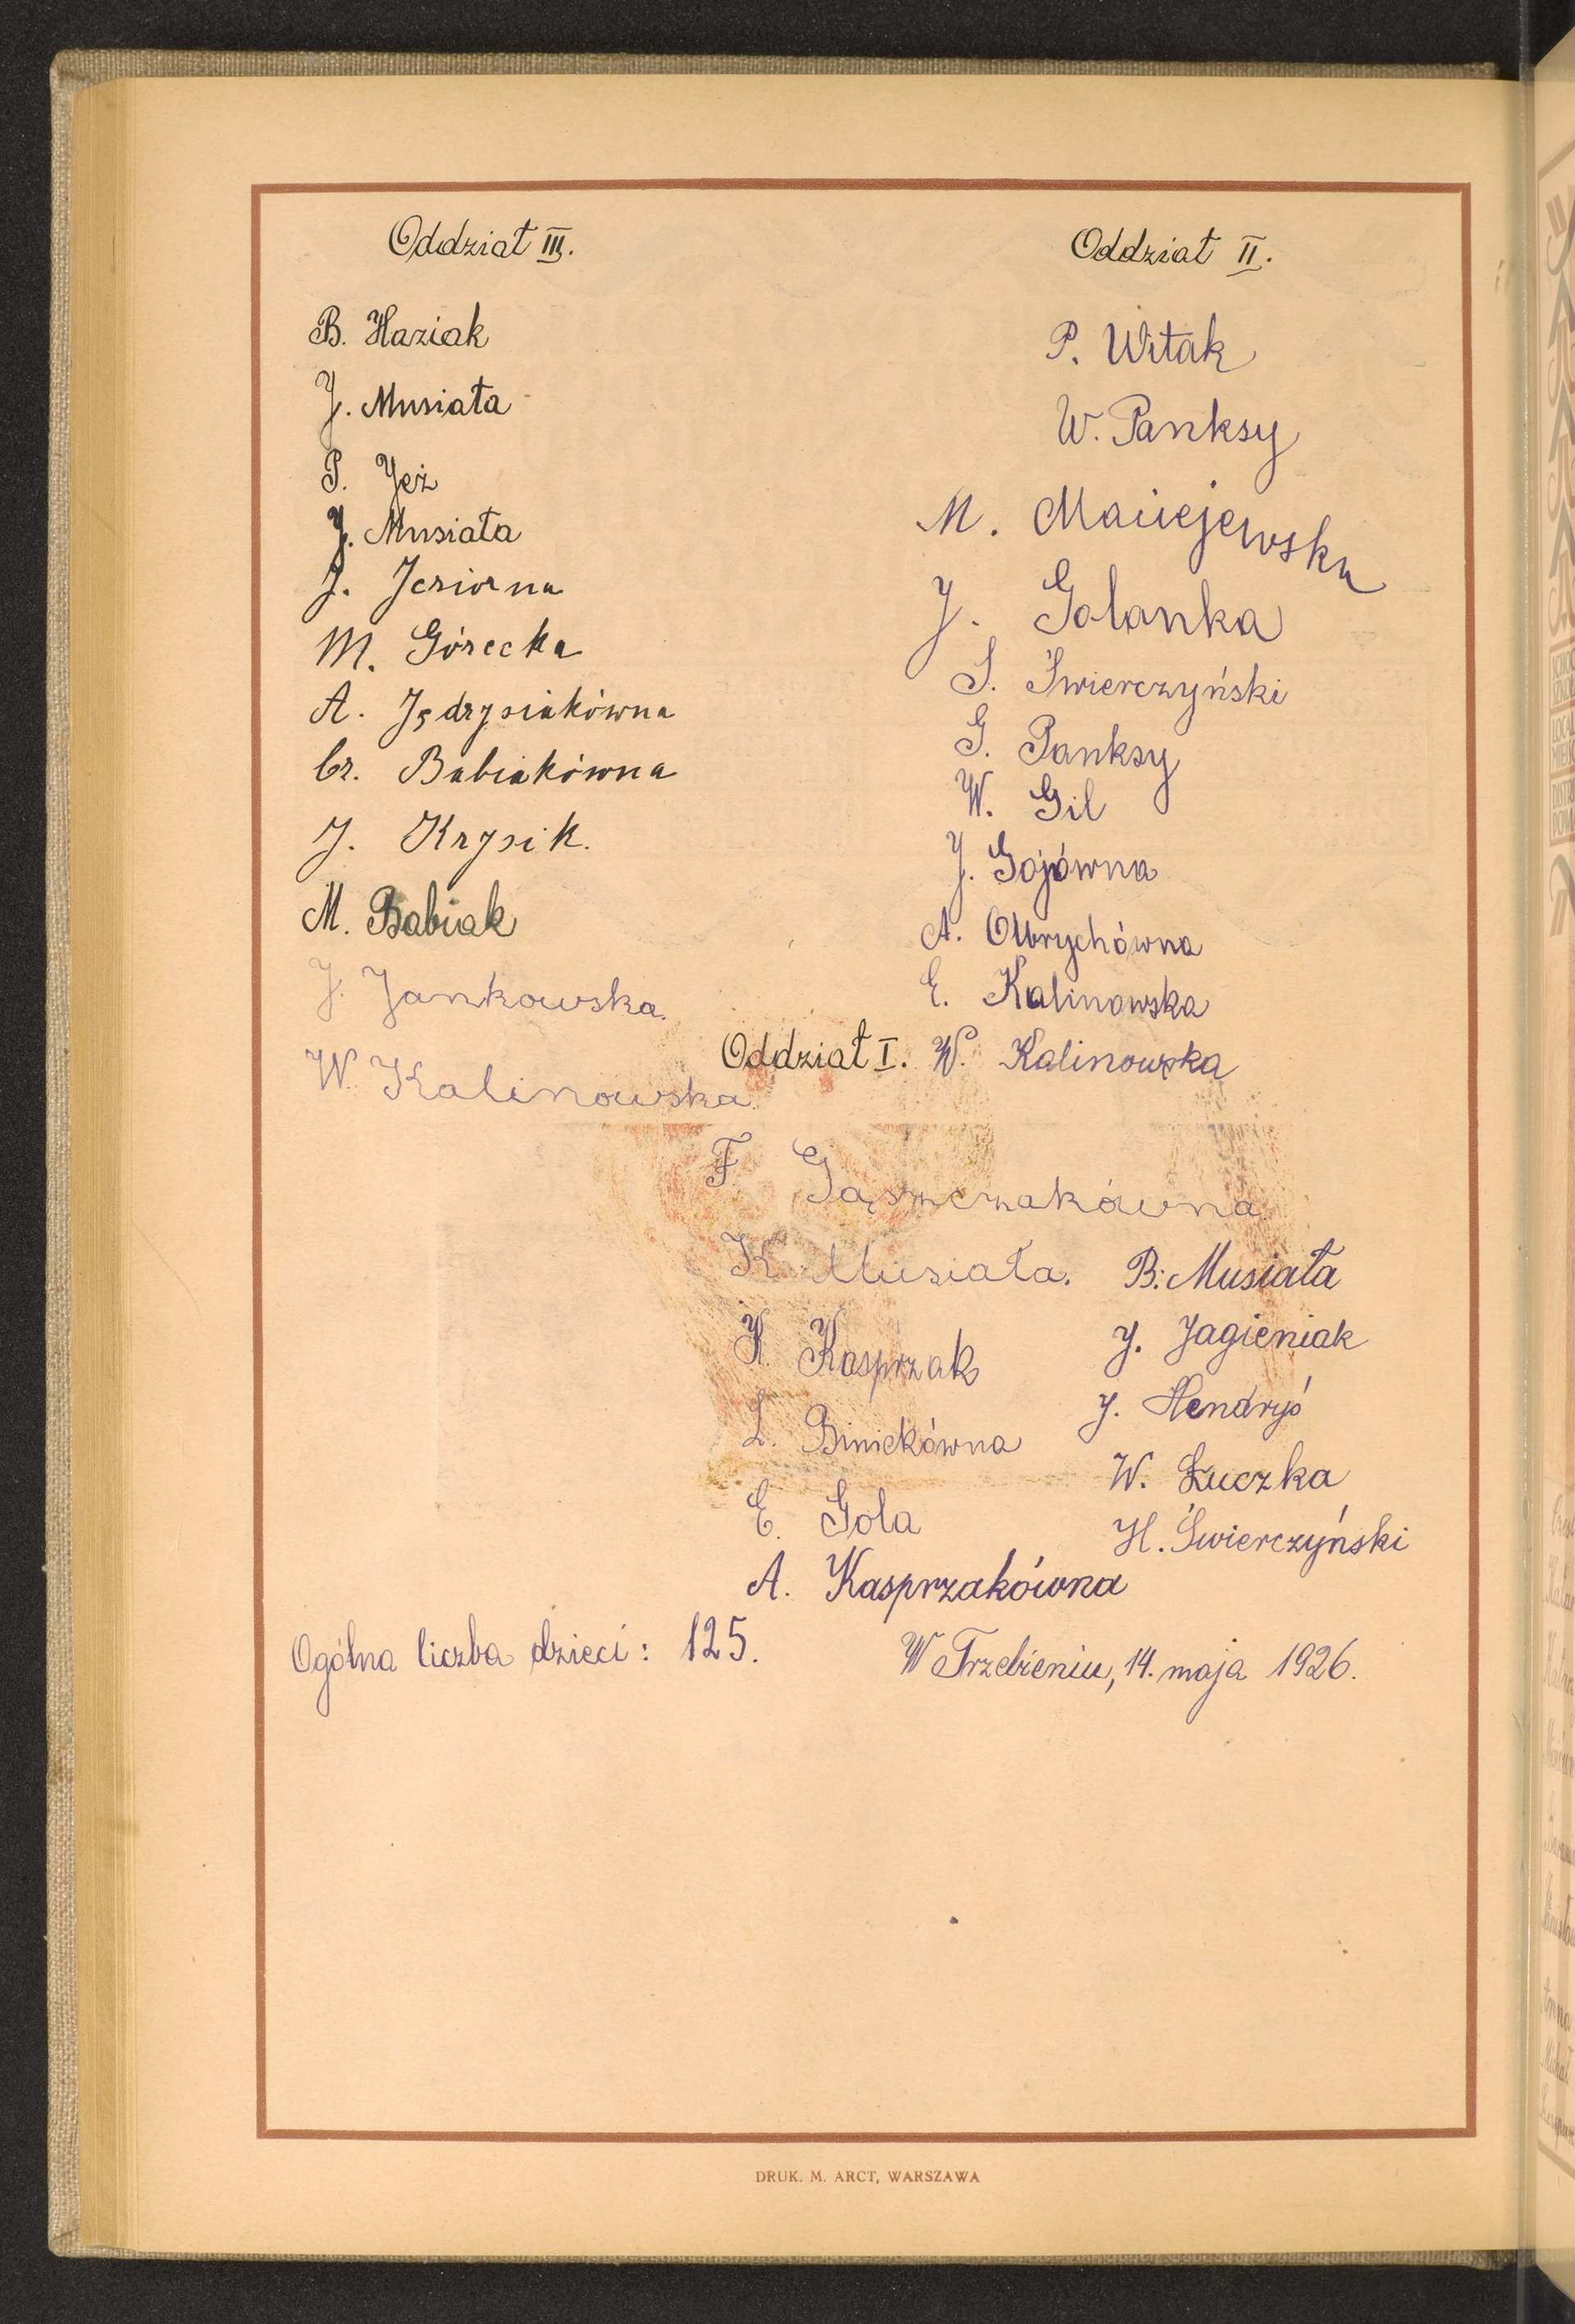 Oddział III.
B. Haziak
J. Musiała
P. Jeż
J. Musiała
J. Jeziorna
M. Górecka
A. Jędrysiakówna
Cz. Babiakówna
J. Krysik.
M. Babiak
J. Jankowska.
W. Kalinowska.
Oddział II.
P. Witak
W. Panksy
M. Maciejewska
J. Golanka
S. Świerczyński
G. Panksy
W. Gil
J. Gojówna
A. Olbrychówna
E. Kalinowska
W. Kalinowska
Oddział I.
F. Gąszczakówna
K. Musiała.
K. Kasprzak
L. Biniekówna
E. Gola
A. Kasprzakówna
B. Musiała
J. Jagieniak
J. Hendryś
W. Łuczka
H. Świerczyński
Ogólna liczba dzieci: 125.
W Trzebieniu, 14. maja 1926.
DRUK. M. ARCT, WARSZAWA